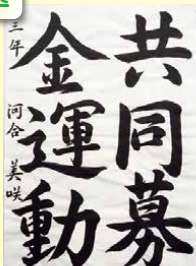 共同募
金運動
三年 河合 美咲